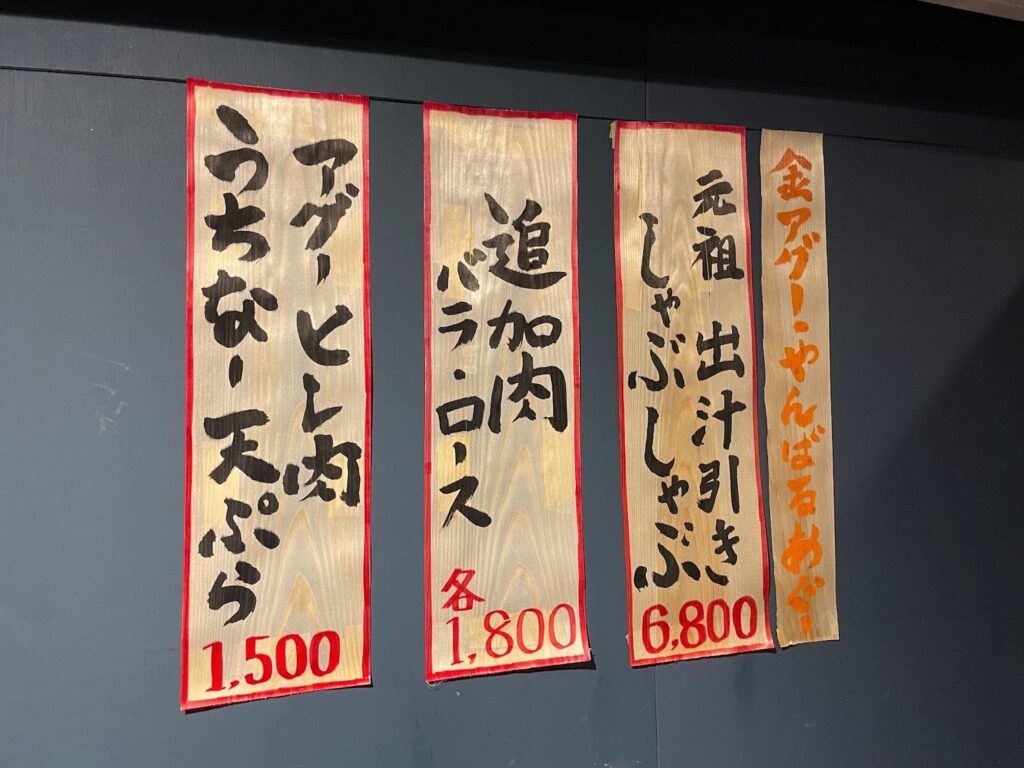 金アグー・やんばるあぐー
元祖 出汁引き
しゃぶしゃぶ
6,800
追加肉
バラ・ロース
各
1,800
アグーヒレ肉
うちなー天ぷら
1,500